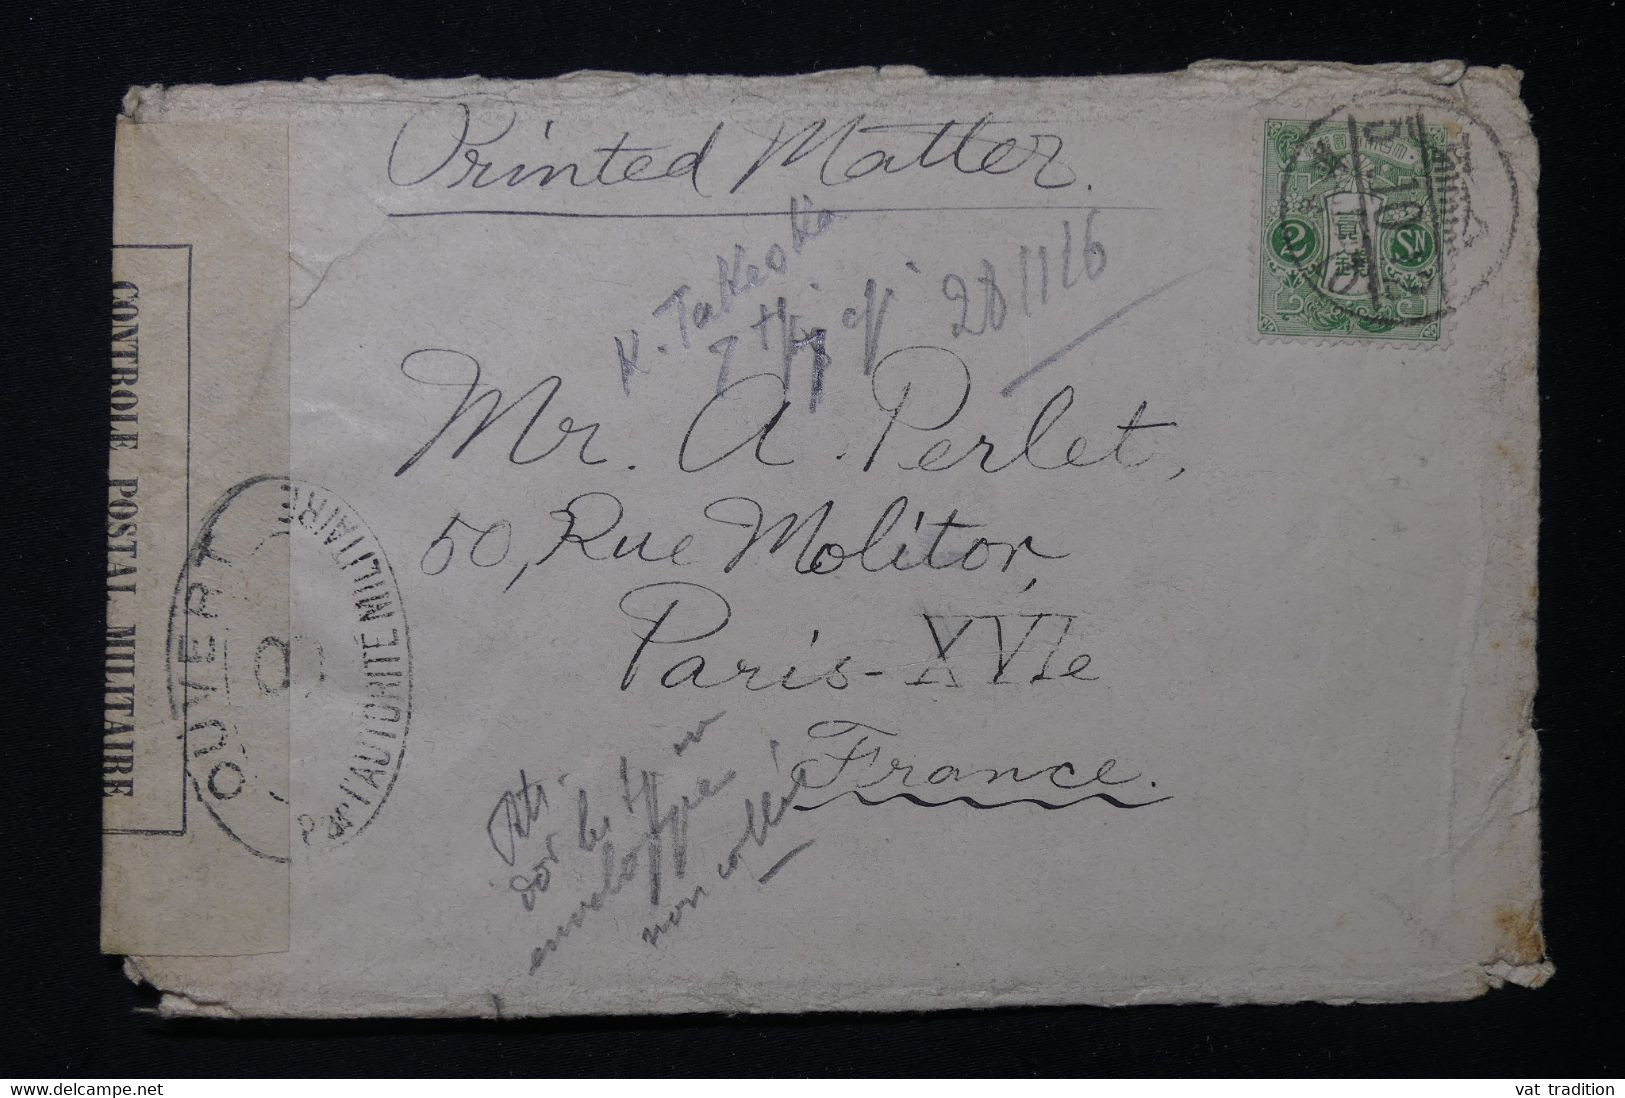 Printed Matter.
K. Takeoka
28 11 16
Mr. A. Perlet,
50, Rue Molitor,
Paris-XVIe
France.
non collée
CONTROLE POSTAL MILITAIRE
OUVERT
PAR L'AUTORITÉ MILITAIRE
貳
錢
2
SN
5.10
www.delcampe.net
vat tradition